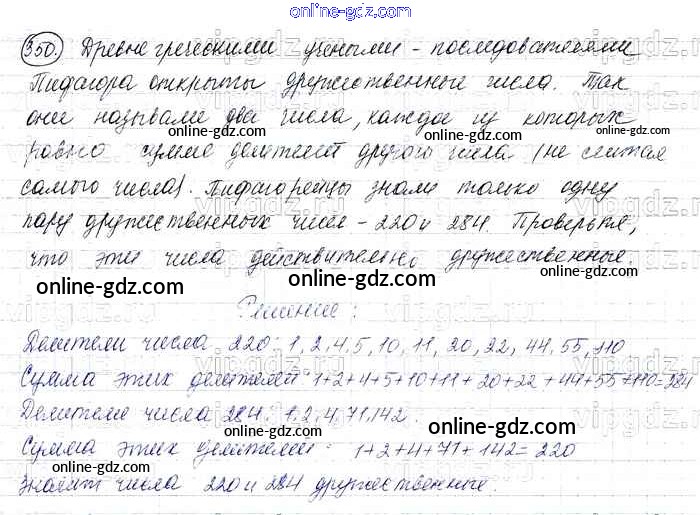 online-gdz.com
350. Древнегреческими учеными - последователями
Пифагора открыты дружественные числа. Так
они называли два числа, каждое из которых
online-gdz.com online-gdz.com
равно сумме делителей другого числа (не считая
самого числа). Пифагорейцы знали только одну
пару дружественных чисел - 220 и 284. Проверьте,
что эти числа действительно дружественные.
online-gdz.com online-gdz.com online-gdz.com
Решение:
Делители числа 220: 1, 2, 4, 5, 10, 11, 20, 22, 44, 55, 110
Сумма этих делителей: 1+2+4+5+10+11+20+22+44+55+110=284
Делители числа 284: 1, 2, 4, 71, 142.
online-gdz.com online-gdz.com
Сумма этих делителей: 1+2+4+71+142=220
Значит числа 220 и 284 дружественные.
online-gdz.com